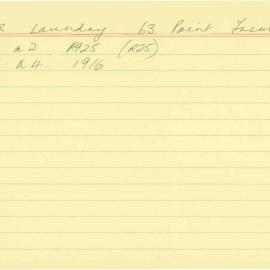 Laundry 63 Point
a2 R925 (R25)
a4. 1916